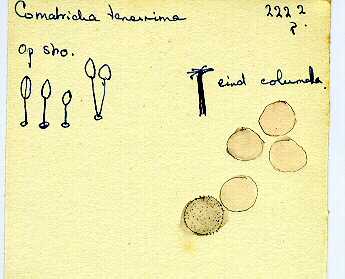 Comatricha tenerrima
2222
P.
Op stro.
eind columela.